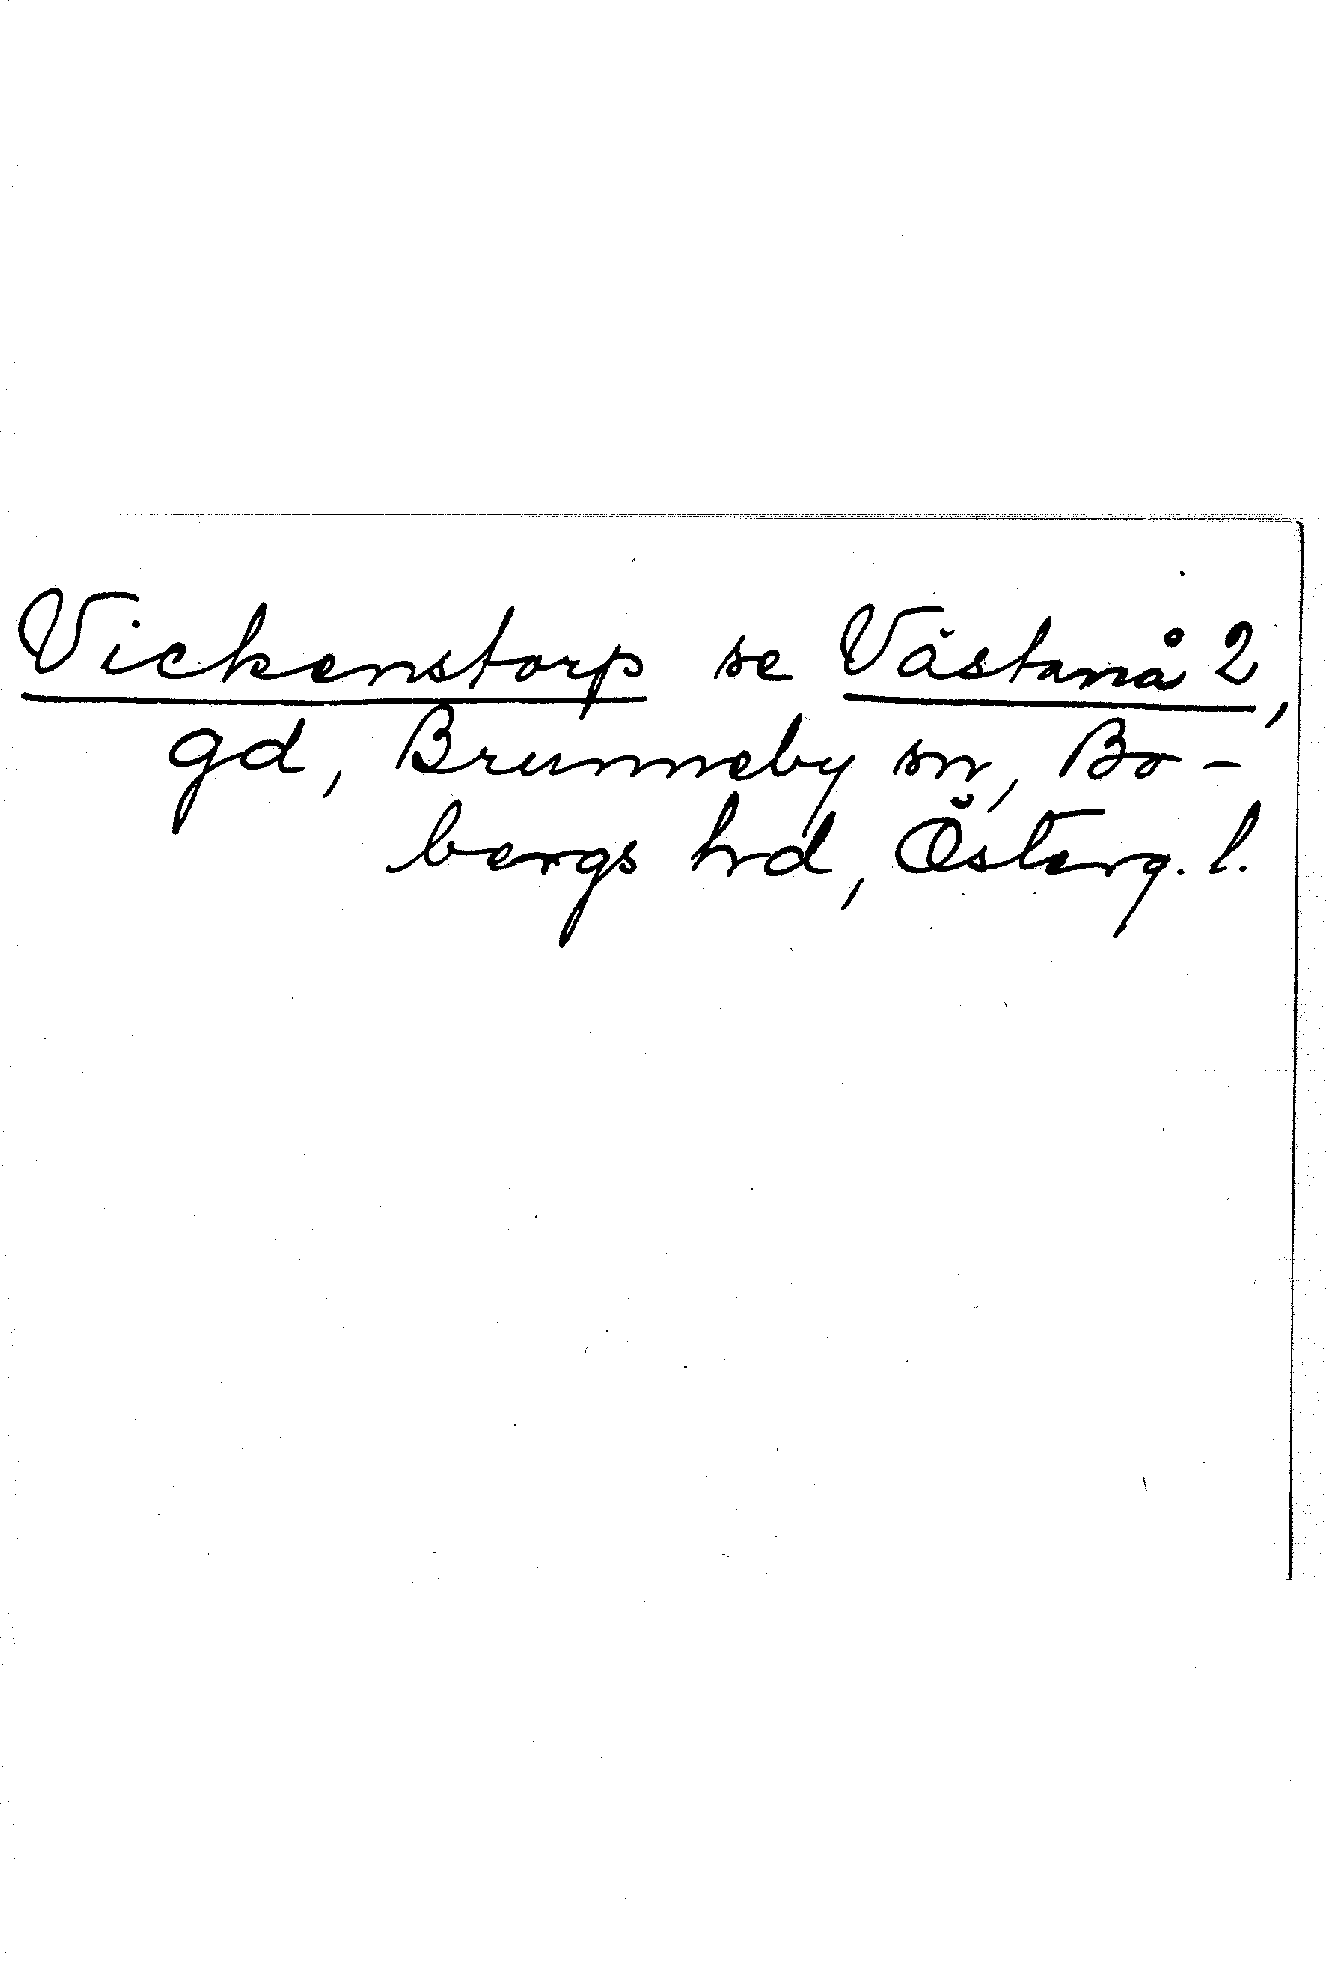 Vickenstorp se Västanå 2,
gd, Brunneby sn, Bo-
bergs hrd, Österg. l.